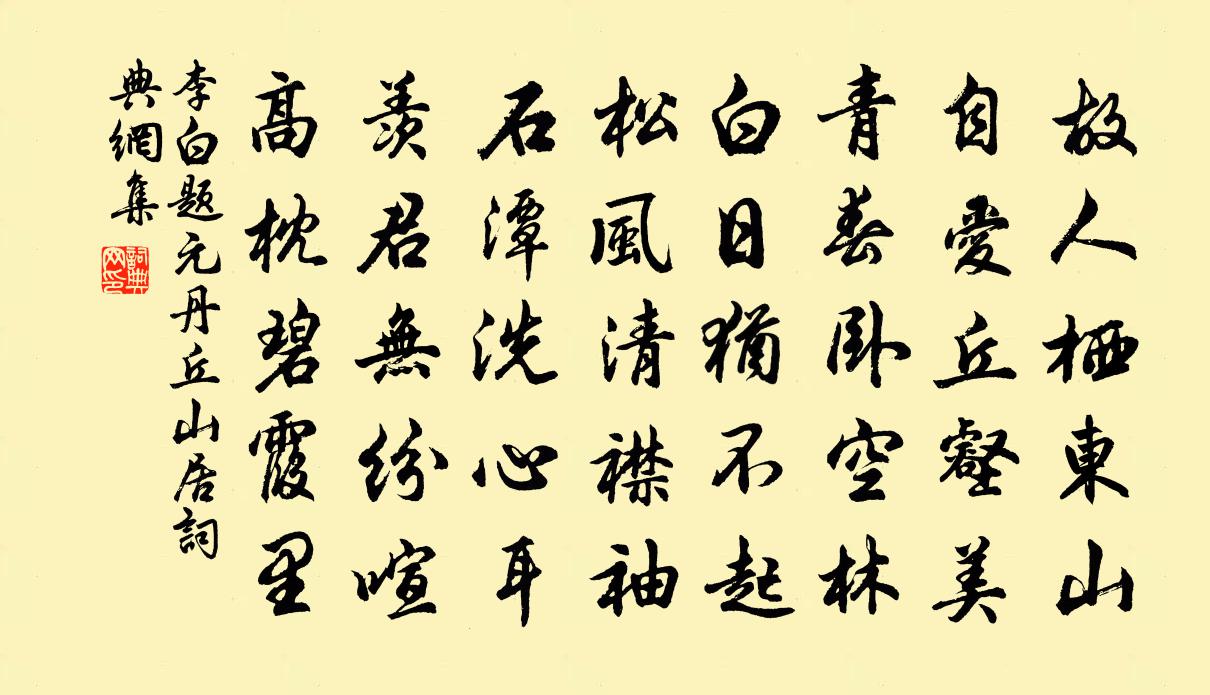 故人栖東山
自愛丘壑美
青春臥空林
白日猶不起
松風清襟袖
石潭洗心耳
羨君無紛喧
高枕碧霞里
李白题元丹丘山居詞
典網集
詞典
网印